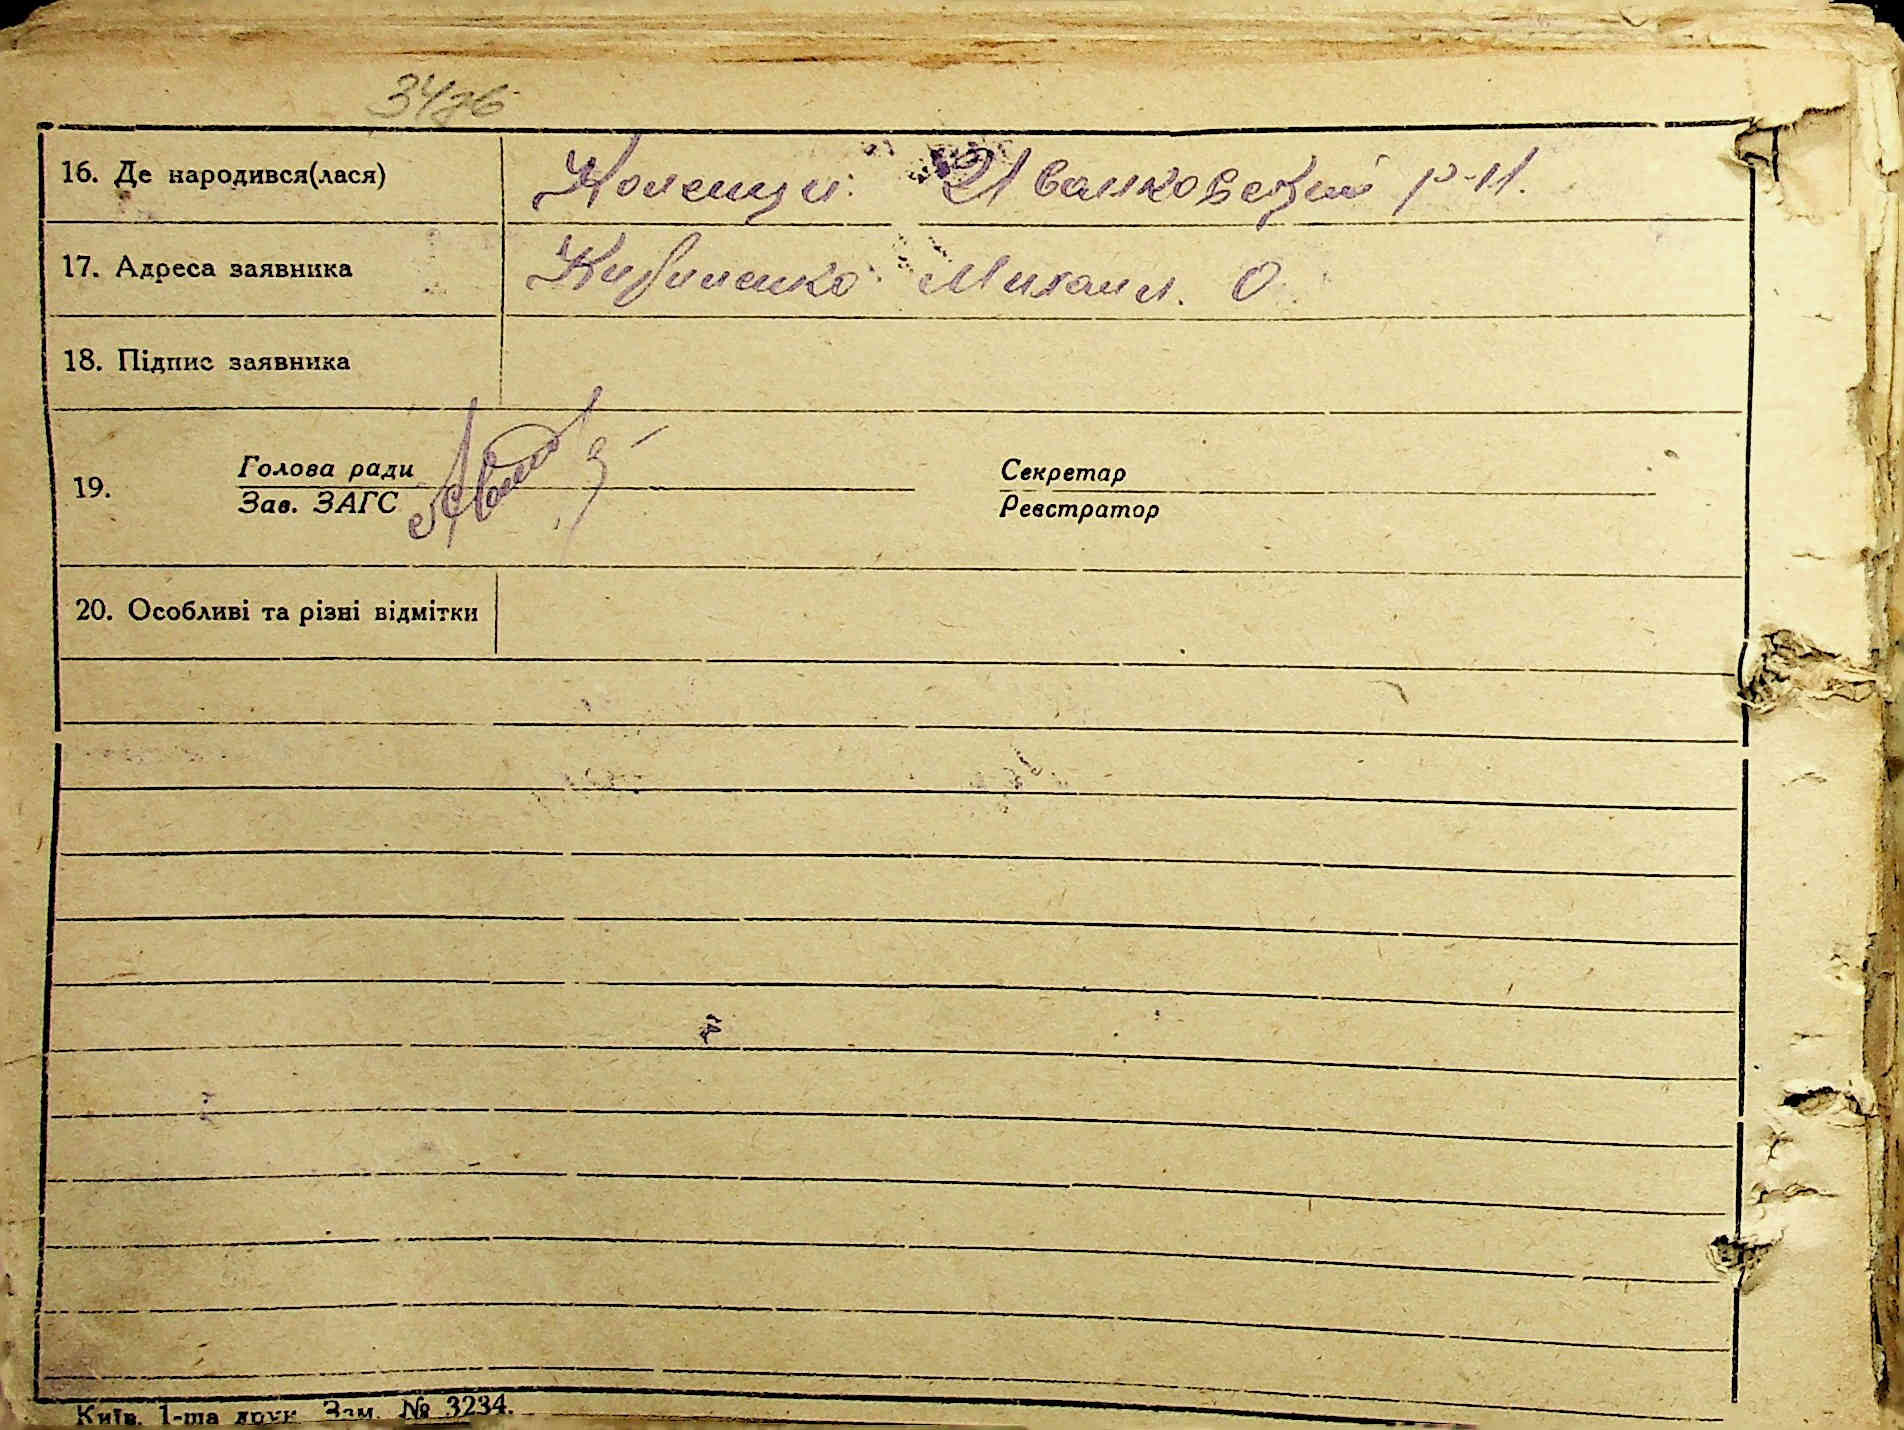 34зв
16. Де народився(лася) Коленци Иванковский р-н.
17. Адреса заявника Кириленко Михаил. О
18. Підпис заявника
19. Голова ради
Зав. ЗАГС
Секретар
Реєстратор
20. Особливі та різні відмітки
Київ. 1-ша друк. Зам. № 3234.